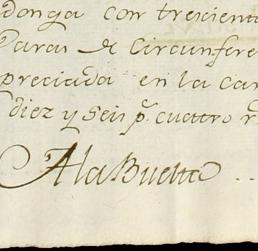 donga con trescienta
Varas de Circunfere
preciada en la can
diez y seis p.s cuattro r
A la Buelta ..